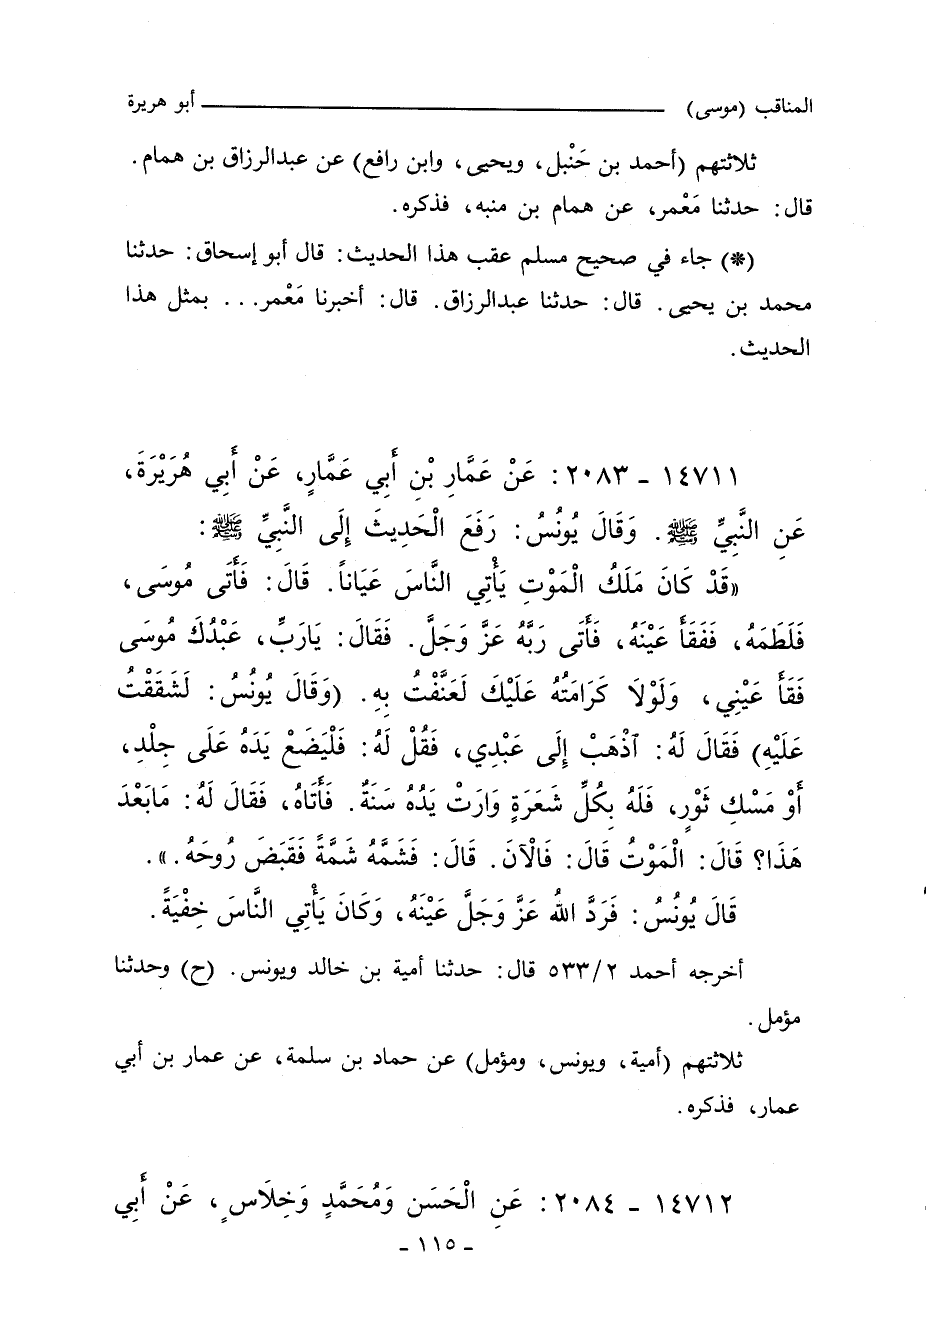 المناقب (موسى) ــــــــــــــــــــــــــــــــ أبو هريرة
ثلاثتهم (أحمد بن حَنْبل، ويحيى، وابن رافع) عن عبدالرزاق بن همام.
قال: حدثنا مَعْمر، عن همام بن منبه، فذكره.
(*) جاء في صحيح مسلم عقب هذا الحديث: قال أبو إسحاق: حدثنا
محمد بن يحيى. قال: حدثنا عبدالرزاق. قال: أخبرنا مَعْمر... بمثل هذا
الحديث.
١٤٧١١ - ٢٠٨٣: عَنْ عَمَّارِ بْنِ أَبِي عَمَّارٍ، عَنْ أَبِي هُرَيْرَةَ،
عَنِ النَّبِيِّ ﷺ. وَقَالَ يُونُسُ: رَفَعَ الْحَدِيثَ إِلَى النَّبِيِّ ﷺ:
«قَدْ كَانَ مَلَكُ الْمَوْتِ يَأْتِي النَّاسَ عَيَاناً. قَالَ: فَأَتَى مُوسَى،
فَلَطَمَهُ، فَفَقَأَ عَيْنَهُ، فَأَتَى رَبَّهُ عَزَّ وَجَلَّ. فَقَالَ: يَارَبِّ، عَبْدُكَ مُوسَى
فَقَأَ عَيْنِي، وَلَوْلَا كَرَامَتُهُ عَلَيْكَ لَعَنَّفْتُ بِهِ. (وَقَالَ يُونُسُ: لَشَقَقْتُ
عَلَيْهِ) فَقَالَ لَهُ: ٱذْهَبْ إِلَى عَبْدِي، فَقُلْ لَهُ: فَلْيَضَعْ يَدَهُ عَلَى جِلْدِ،
أَوْ مَسْكِ ثَوْرٍ، فَلَهُ بِكُلِّ شَعَرَةٍ وَارَتْ يَدُهُ سَنَةٌ. فَأَتَاهُ، فَقَالَ لَهُ: مَابَعْدَ
هَذَا؟ قَالَ: الْمَوْتُ قَالَ: فَالْآنَ. قَالَ: فَشَمَّهُ شَمَّةً فَقَبَضَ رُوحَهُ.».
قَالَ يُونُسُ: فَرَدَّ اللهُ عَزَّ وَجَلَّ عَيْنَهُ، وَكَانَ يَأْتِي النَّاسَ خِفْيَةً.
أخرجه أحمد ٥٣٣/٢ قال: حدثنا أمية بن خالد ويونس. (ح) وحدثنا
مؤمل.
ثلاثتهم (أمية، ويونس، ومؤمل) عن حماد بن سلمة، عن عمار بن أبي
عمار، فذكره.
١٤٧١٢ - ٢٠٨٤: عَنِ الْحَسَنِ وَمُحَمَّدٍ وَخِلَاسٍ، عَنْ أَبِي
- ١١٥ -